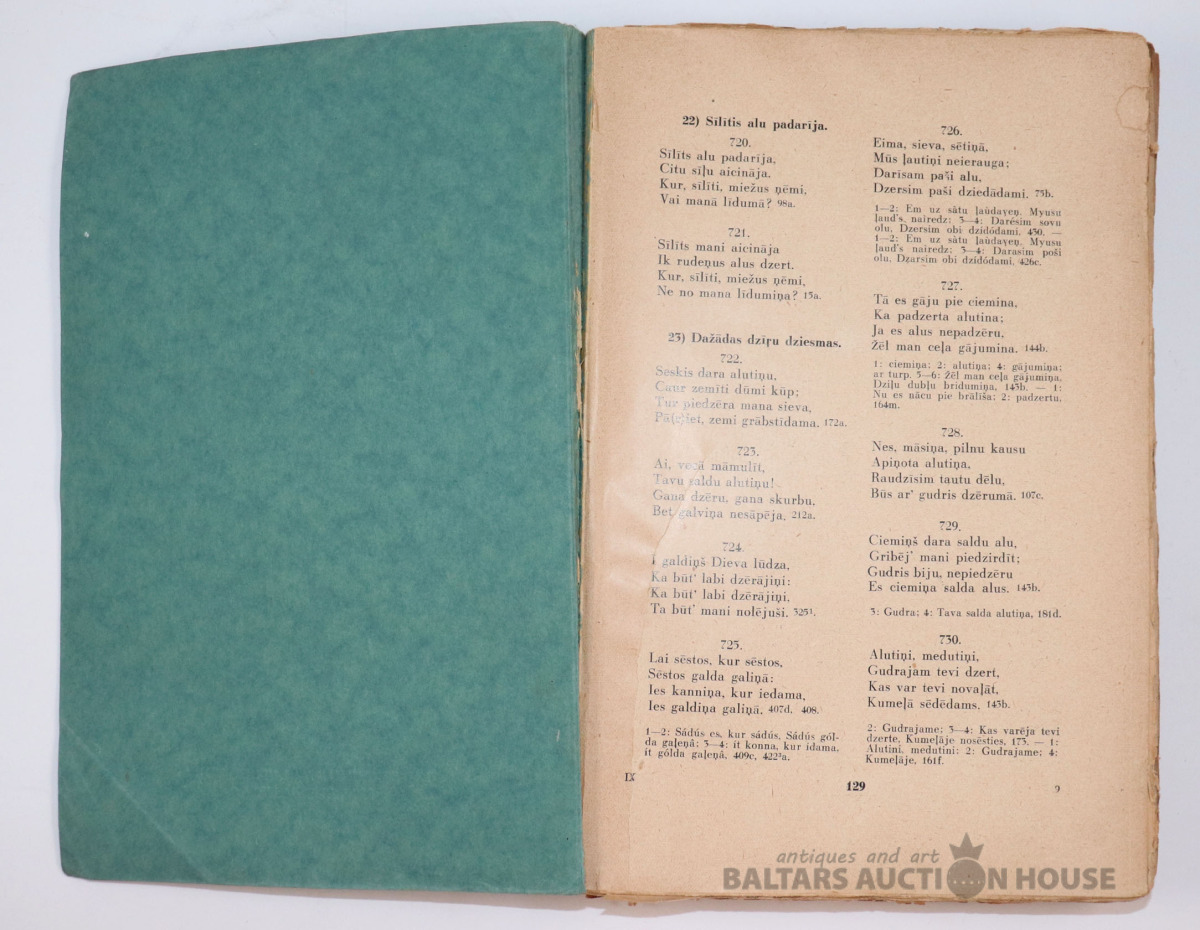 22) Sīlītis alu padarīja.
720.
Sīlīts alu padarīja,
Citu sīļu aicināja.
Kur, sīlīti, miežus ņēmi,
Vai manā līdumā? 98a.
721.
Sīlīts mani aicināja
Ik rudeņus alus dzert.
Kur, sīlīti, miežus ņēmi,
Ne no mana līdumiņa? 15a.
23) Dažādas dzīŗu dziesmas.
722.
Seskis dara alutiņu,
Caur zemīti dūmi kūp;
Tur piedzēra mana sieva,
zemi grābstīdama. 172a.
723.
Ai, vecā māmulīt,
Tavu saldu alutiņu!
Gana dzēru, gana skurbu,
Bet galviņa nesāpēja. 212a.
724.
I galdiņš Dieva lūdza,
Ka būt' labi dzērājiņi:
Ka būt' labi dzērājiņi,
Ta būt' mani nolējuši. 325¹.
725.
Lai sēstos, kur sēstos,
Sēstos galda galiņā:
Ies kanniņa, kur iedama,
Ies galdiņa galiņā. 407d. 408.
1—2: Sádús es, kur sádús, Sádús gól-
da gaļeņâ; 3—4: ít konna, kur ídama,
ít gólda gaļeņâ. 409c, 422³a.
IX
726.
Eima, sieva, sētiņā,
Mūs ļautiņi neierauga;
Darīsam paši alu,
Dzersim paši dziedādami. 75b.
1—2: Em uz sàtu ļaùdaveņ. Myusu
ļaud's nairedz; 3—4: Darésim sovu
olu, Dzersim obi dzídódami. 430. —
1—2: Em uz sàtu ļaùdaveņ. Myusu
ļaud's nairedz; 3—4: Darasim poši
olu, Dzarsim obi dzídódami, 426c.
727.
Tā es gāju pie ciemina,
Ka padzerta alutina;
Ja es alus nepadzēru,
Žēl man ceļa gājumina. 144b.
1: ciemiņa; 2: alutiņa; 4: gājumiņa;
ar turp. 5—6: Žēl man ceļa gājumiņa,
Dziļu dubļu bridumiņa, 143b. — 1:
Nu es nācu pie brālīša; 2: padzertu,
164m.
728.
Nes, māsiņa, pilnu kausu
Apiņota alutiņa,
Raudzīsim tautu dēlu,
Būs ar' gudris dzērumā. 107c.
729.
Ciemiņš dara saldu alu,
Gribēj' mani piedzirdīt;
Gudris biju, nepiedzēru
Es ciemiņa salda alus. 143b.
3: Gudra; 4: Tava salda alutiņa, 181d.
730.
Alutiņi, medutiņi,
Gudrajam tevi dzert,
Kas var tevi novaļāt,
Kumeļā sēdēdams. 143b.
2: Gudrajame; 3—4: Kas varēja tevi
dzerte, Kumeļāje nosēsties, 173. — 1:
Alutini, medutini; 2: Gudrajame; 4:
Kumeļāje, 161f.
129
9
antiques and art
BALTARS AUCTION HOUSE